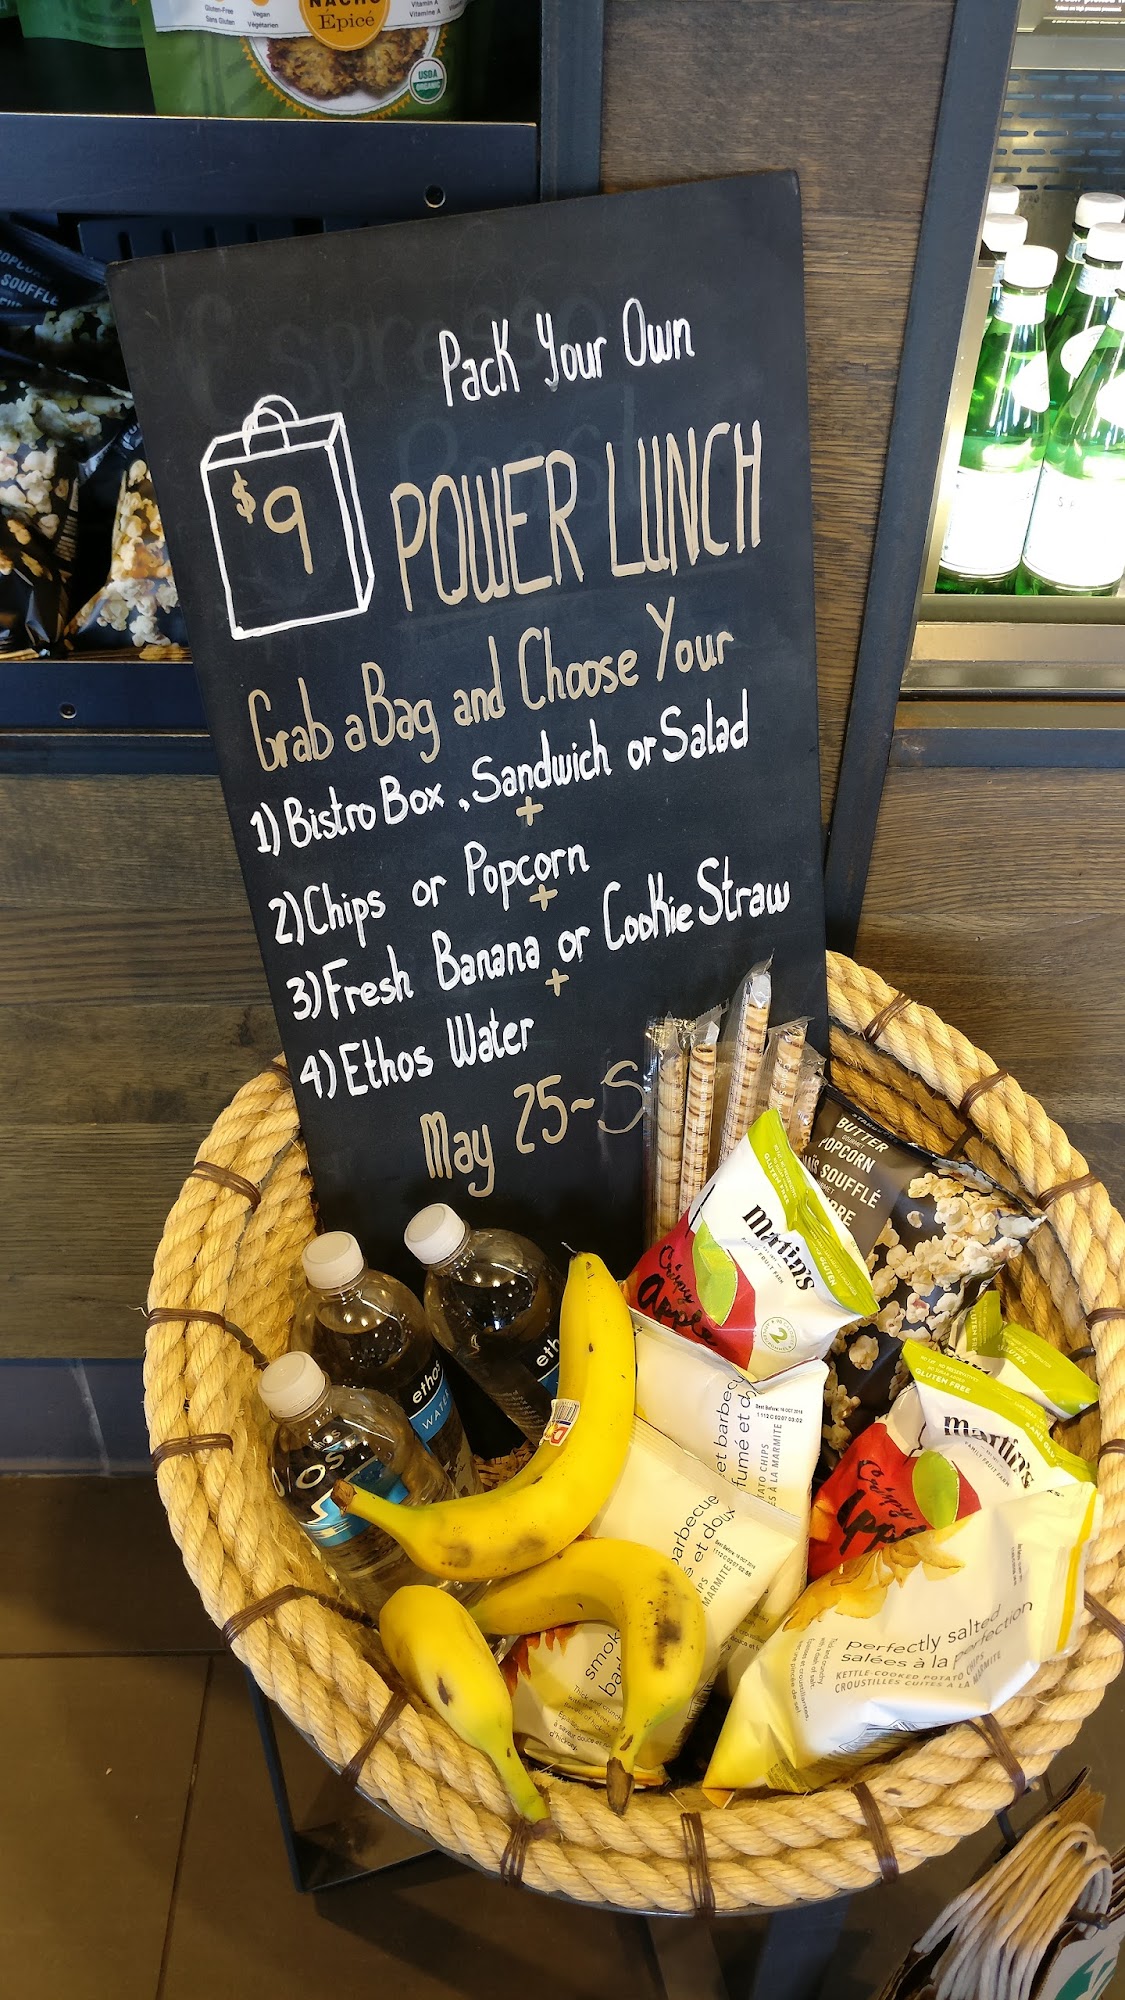 NACHO
Epicé
Gluten-Free
Sans Gluten
Vegan
Végétarien
Vitamin A
Vitamine A
USDA
ORGANIC
POPCORN
SOUFFLÉ
Pack Your Own
$9
POWER LUNCH
Grab a Bag and Choose Your
1) Bistro Box, Sandwich or Salad
+
2) Chips or Popcorn
+
3) Fresh Banana or Cookie Straw
+
4) Ethos Water
May 25~S
BUTTER
GOURMET
POPCORN
SOUFFLÉ
GLUTEN FREE
Martin's
FAMILY FRUIT FARM
Crispy
Apple
2
ethos
WATER
eth
OS
et barbecue
fumé et do
TATO CHIPS
S À LA MARMITE
Best Before
1112 C 0207 03:02
arbecue
et doux
IPS
MARMITE
smok
bar
GLUTEN FREE
Martin's
FAMILY FRUIT FARM
Crispy
Appl
perfectly salted
salées à la perfection
KETTLE-COOKED POTATO CHIPS
CROUSTILLES CUITES À LA MARMITE